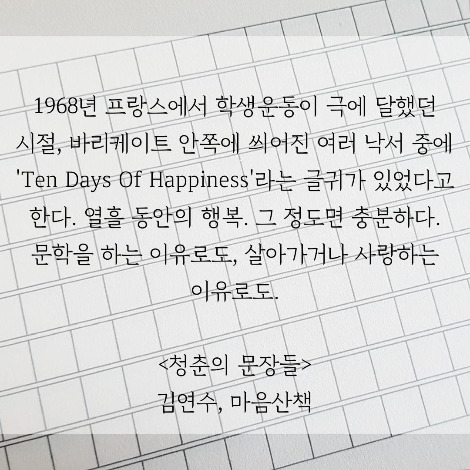 1968년 프랑스에서 학생운동이 극에 달했던
시절, 바리케이트 안쪽에 씌어진 여러 낙서 중에
'Ten Days Of Happiness'라는 글귀가 있었다고
한다. 열흘 동안의 행복. 그 정도면 충분하다.
문학을 하는 이유로도, 살아가거나 사랑하는
이유로도.
<청춘의 문장들>
김연수, 마음산책